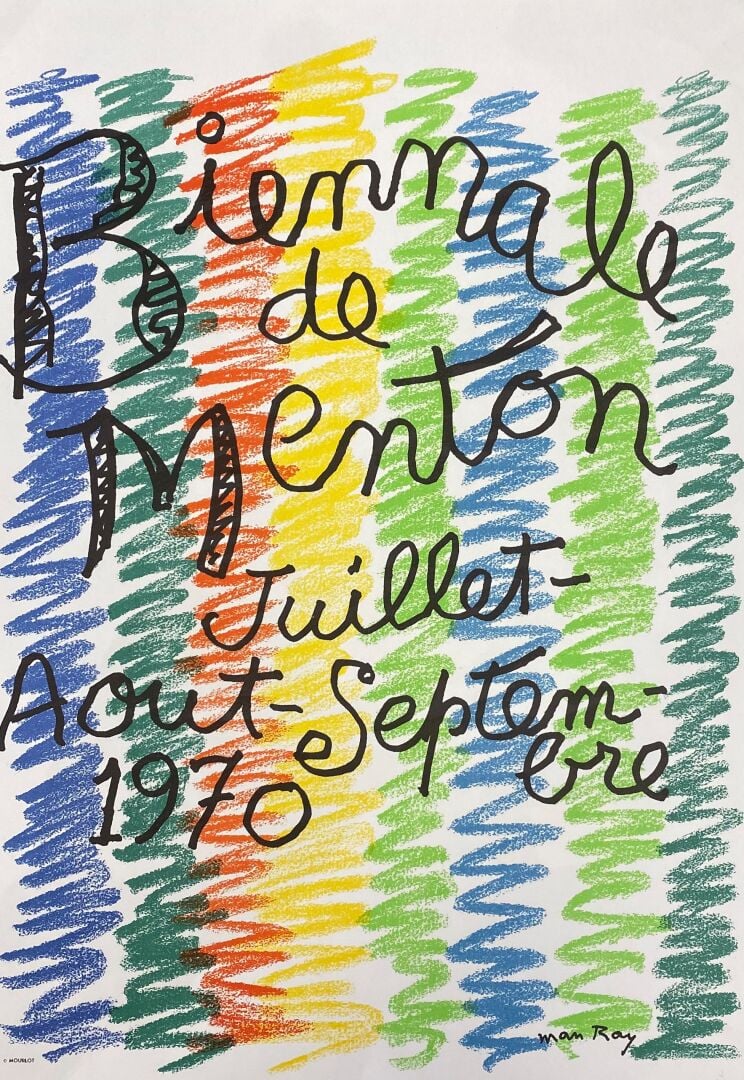 Biennale
de
Menton
Juillet-
Aout-Septem-
bre
1970
man Ray
© MOURLOT